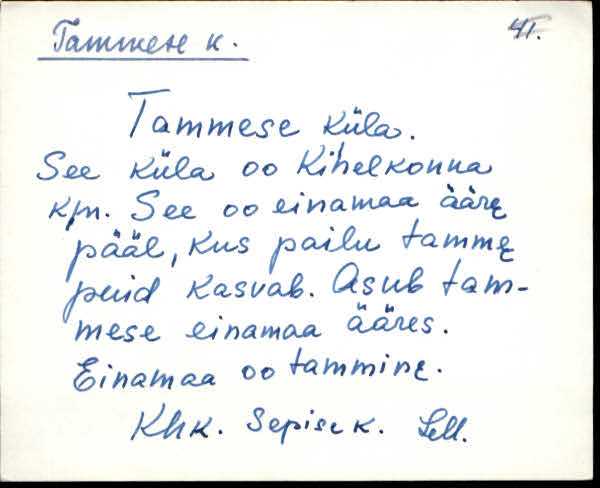 Tammese k.
41.
Tammese küla.
See küla oo Kihelkonna
kpn. See oo einamaa äärę
pääl, kus pailu tammę
puid kasvab. Asub tam-
mese einamaa ääres.
Einamaa oo tamminę.
Khk. Sepise k. Sell.